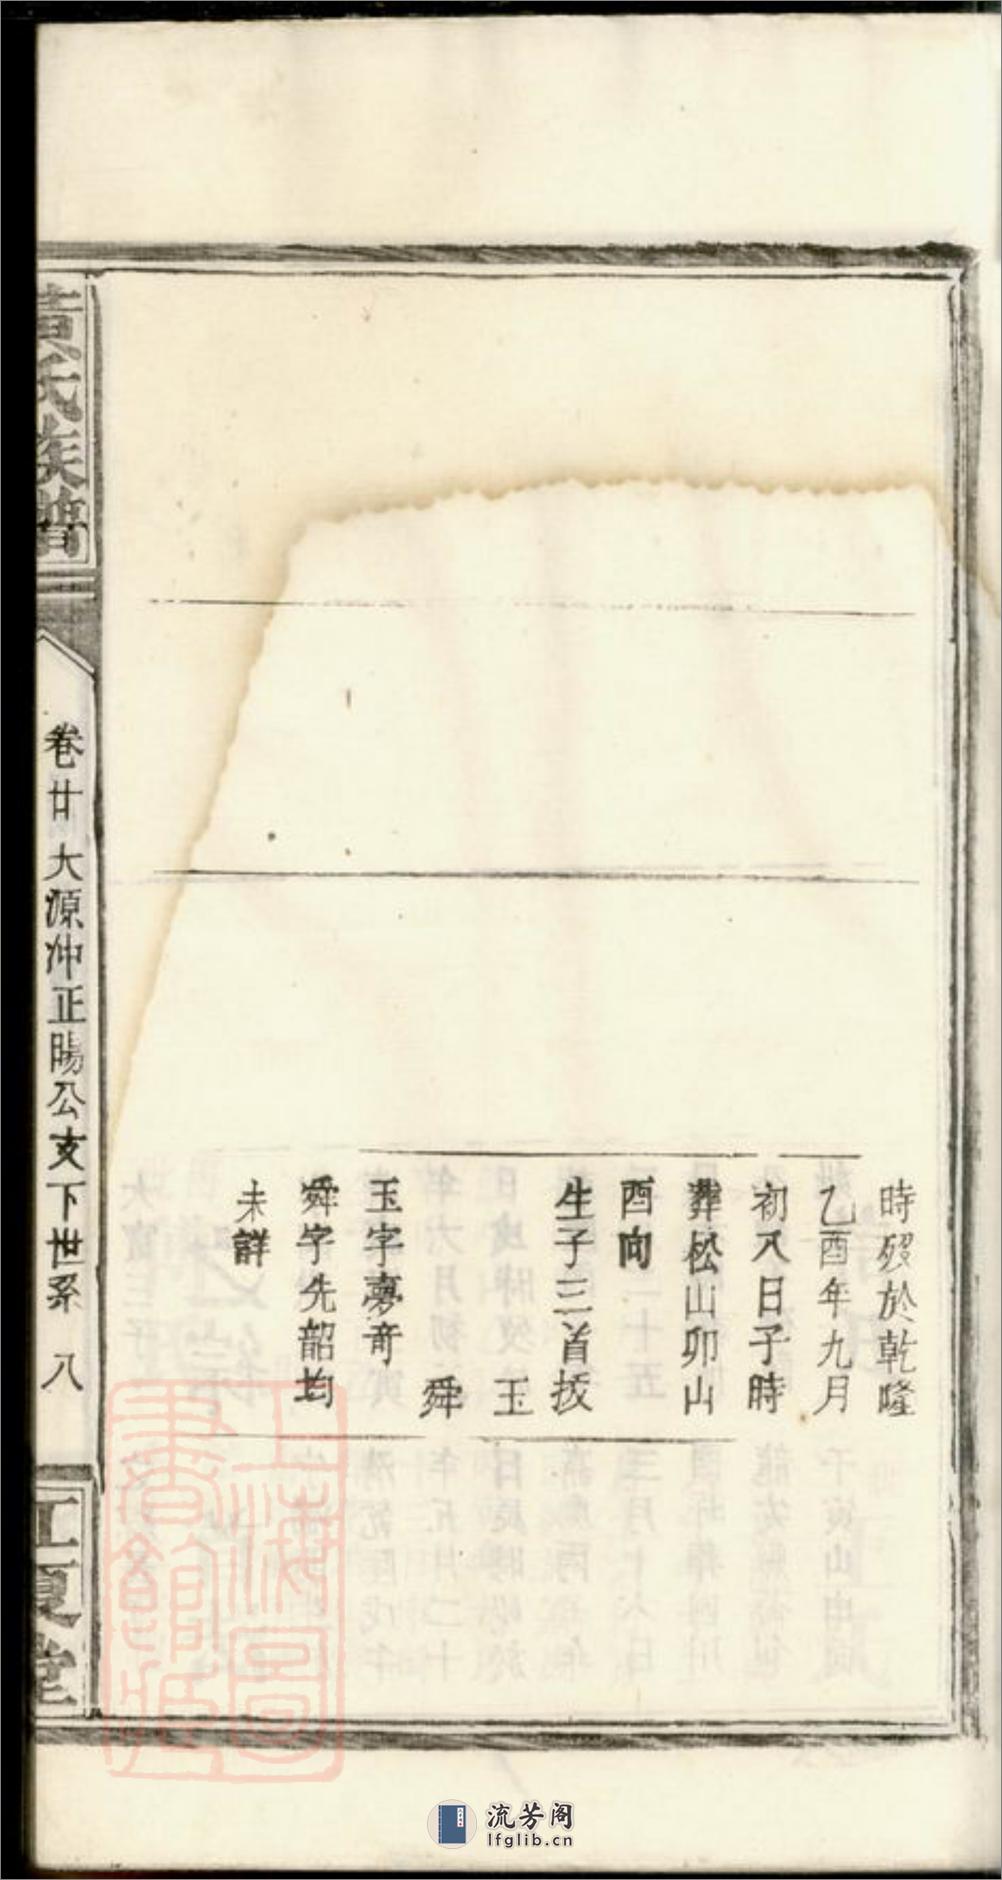 時歿於乾隆
乙酉年九月
初八日子時
葬松山卯山
酉向
生子三首拔
玉
舜
玉字夢奇
舜字先韶均
未詳
黃氏族譜
卷廿 大源冲正陽公支下世系 八
江夏堂
上海圖書館藏
流芳阁
lfglib.cn